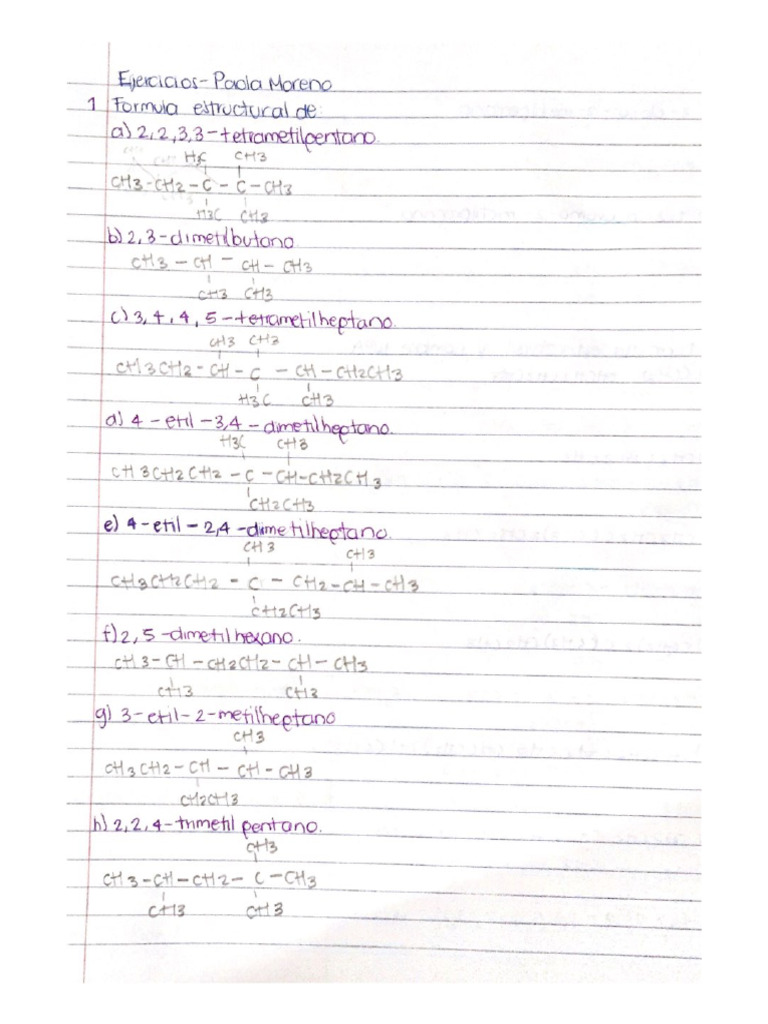 Ejercicios - Paola Moreno
1 Formula estructural de:
a) 2,2,3,3-tetrametilpentano.
H3C CH3
CH3-CH2-C-C-CH3
H3C CH3
b) 2,3-dimetilbutano
CH3-CH-CH-CH3
CH3 CH3
c) 3,4,4,5-tetrametilheptano.
CH3 CH3
CH3CH2-CH-C-CH-CH2CH3
H3C CH3
d) 4-etil-3,4-dimetilheptano.
H3C CH3
CH3CH2CH2-C-CH-CH2CH3
CH2CH3
e) 4-etil-2,4-dimetilheptano.
CH3 CH3
CH3CH2CH2-C-CH2-CH-CH3
CH2CH3
f) 2,5-dimetilhexano.
CH3-CH-CH2CH2-CH-CH3
CH3 CH3
g) 3-etil-2-metilheptano
CH3
CH3CH2-CH-CH-CH3
CH2CH3
h) 2,2,4-trimetil pentano.
CH3
CH3-CH-CH2-C-CH3
CH3 CH3